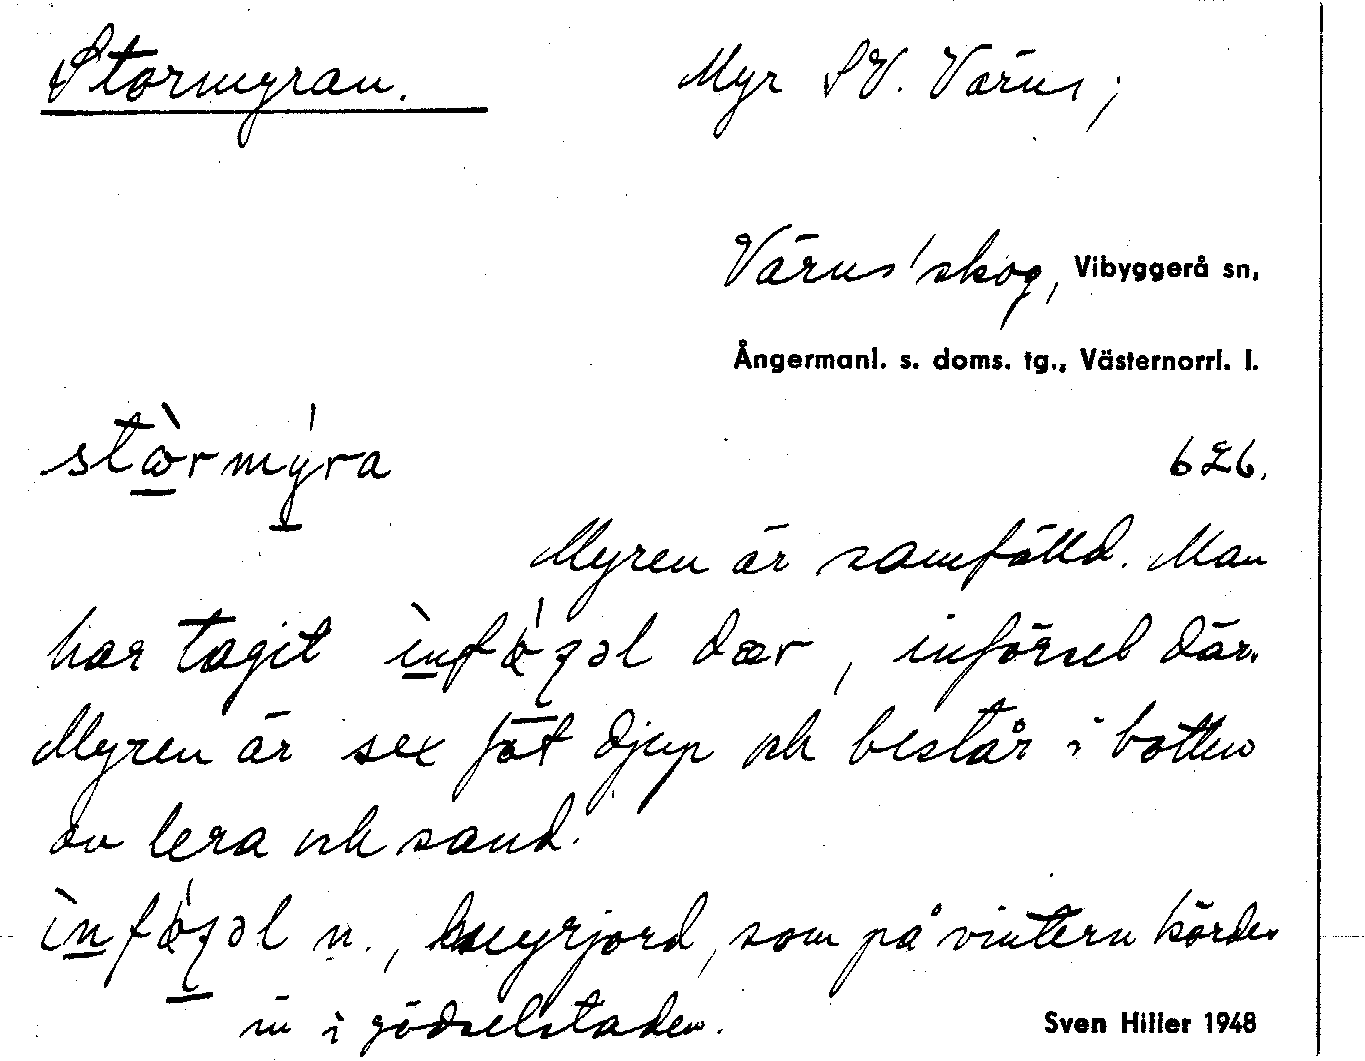 Stormyran. Myr SV. Värns;
Värns'skog, Vibyggerå sn,
Ångermanl. s. doms. tg., Västernorrl. l.
stòrmýra 626.
Myren är samfälld. Man
har tagit dær, införsel där.
Myren är sex fot djup och består i botten
av lera och sand.
n., myrjord, som på vintern kördes
in i gödselstaden.
Sven Hiller 1948